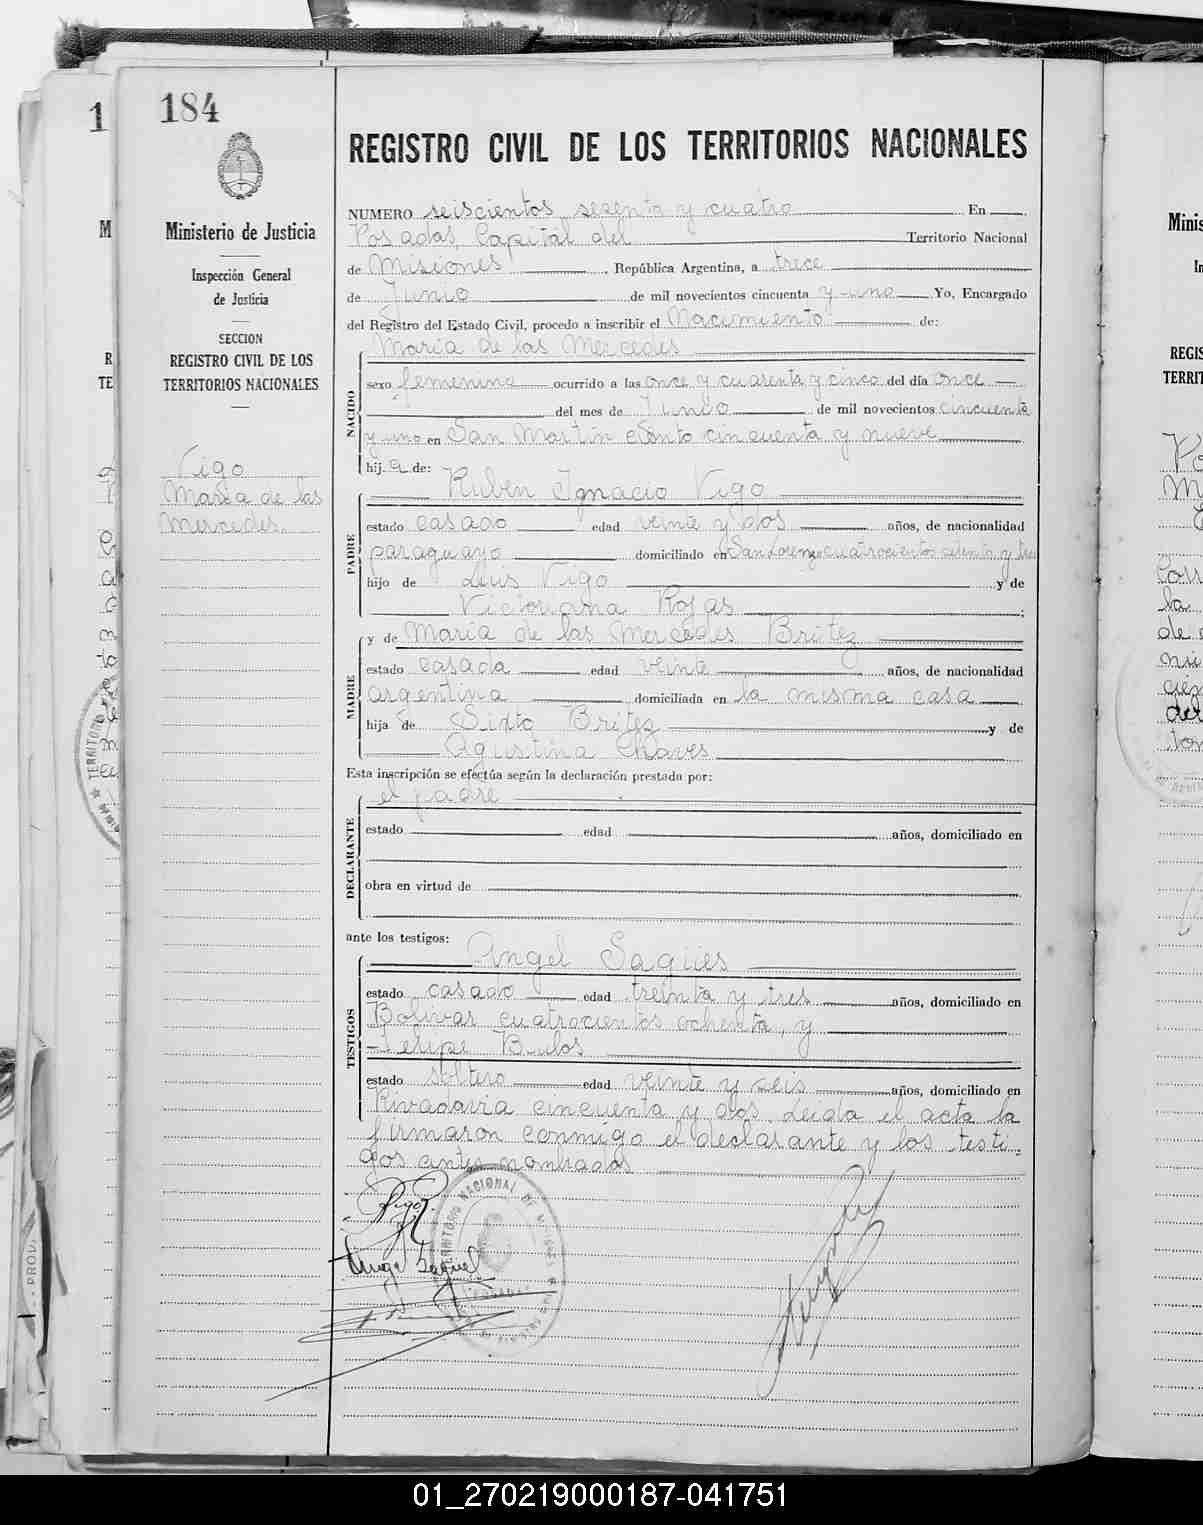 184
Ministerio de Justicia
Inspección General
de Justicia
SECCION
REGISTRO CIVIL DE LOS
TERRITORIOS NACIONALES
Vigo
Maria de las
Mercedes.
REGISTRO CIVIL DE LOS TERRITORIOS NACIONALES
NUMERO seiscientos sesenta y cuatro En
Posadas, Capital del Territorio Nacional
de Misiones, República Argentina, a trece
de Junio de mil novecientos cincuenta y uno Yo, Encargado
del Registro del Estado Civil, procedo a inscribir el Nacimiento de:
Maria de las Mercedes
NACIDO
sexo femenino ocurrido a las once y cuarenta y cinco del día once
del mes de Junio de mil novecientos cincuenta
y uno en San Martin ciento cincuenta y nueve
hija de:
Ruben Ignacio Vigo
PADRE
estado casado edad veinte y dos años, de nacionalidad
paraguayo domiciliado en San Lorenzo cuatrocientos setenta y tres
hijo de Luis Vigo y de
Victoriana Rojas;
y de Maria de las Mercedes Britez
MADRE
estado casada edad veinte años, de nacionalidad
argentina domiciliada en la misma casa
hija de Sixto Britez y de
Agustina Chaves
Esta inscripción se efectúa según la declaración prestada por:
el padre
DECLARANTE
estado edad años, domiciliado en
obra en virtud de
ante los testigos:
Angel Sagües
TESTIGOS
estado casado edad treinta y tres años, domiciliado en
Bolivar cuatrocientos ochenta, y
Felipe Bulos
estado soltero edad veinte y seis años, domiciliado en
Rivadavia cincuenta y dos. Leida el acta la
firmaron conmigo el declarante y los testi-
gos antes nombrados
01_270219000187-041751